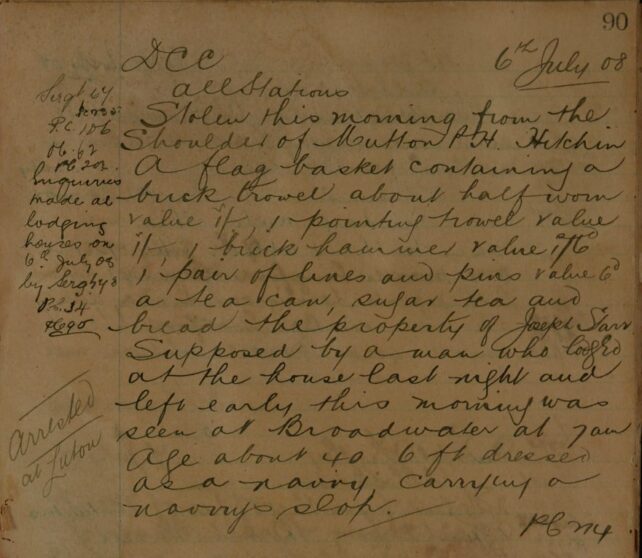 90
DCC 6th July 08
all Stations
Stolen this morning from the
Shoulder of Mutton P.H. Hitchin
A flag basket containing a
brick trowel about half worn
value 1/-, 1 pointing trowel value
1/-, 1 brick hammer value 1/6d
1 pair of lines and pins value 6d
a tea can, sugar tea and
bread the property of Joseph Starr
Supposed by a man who lodged
at the house last night and
left early this morning was
seen at Broadwater at 7am
Age about 40 6 ft dressed
as a navvy carrying a
navvys slop.
P.C.
Sergt 64
P.C. 106
PC 62
PC 202
Inquiries
made at
lodging
houses on
6th July 08
by Sergt
P.C. 34
&
Arrested
at Luton